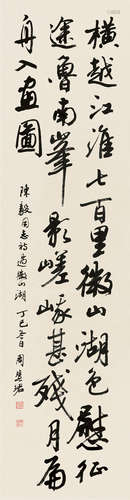 橫越江淮七百里微山湖色慰征
途魯南峯影嵯峨甚殘月扁
舟入畫圖
陳毅同志詩過微山湖 丁巳冬日 周慧珺